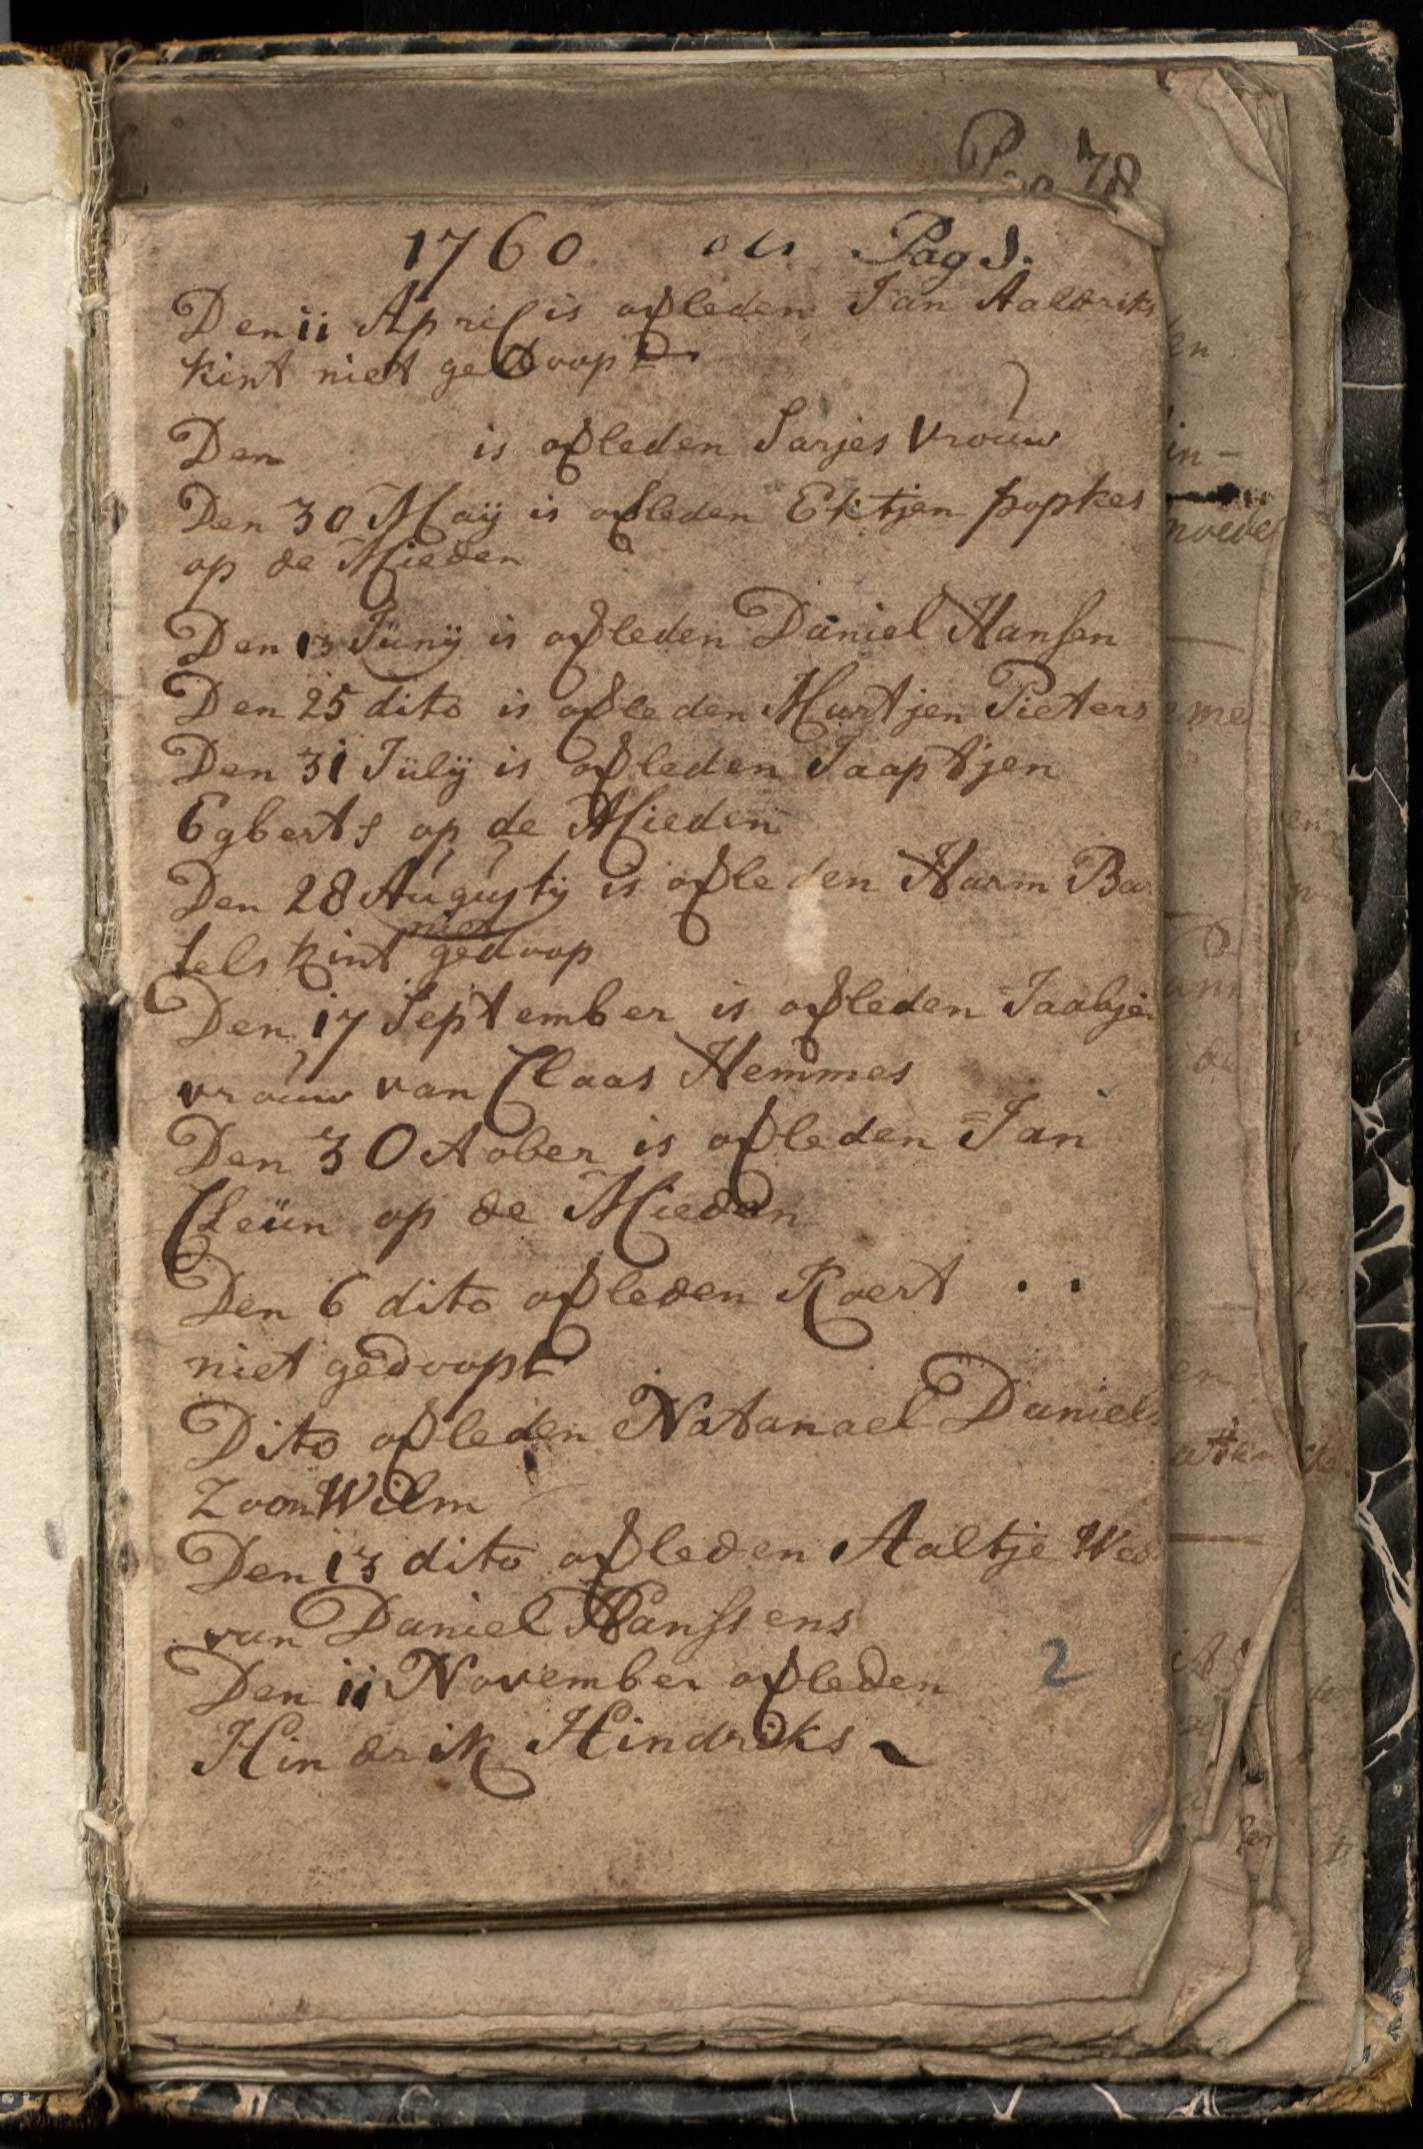 Pag 78
1760 Pag 1.
Den 11 April is ofleden Jan Aaldriks
kint niet gedoopt
Den is ofleden Sarjes Vrouw
Den 30 Maij is ofleden Ektjen popkes
op de Mieden
Den 13 Junij is ofleden Daniel Hansen
Den 25 dito is ofleden Martjen Pieters
Den 31 Julij is ofleden Jaaptjen
Egberts op de Mieden
Den 28 Augustij is ofleden Harm Bar
tels kint niet gedoop
Den 17 September is ofleden Jaabjen
vrouw van Claas Hemmes
Den 3 October is ofleden Jan
Cleün op de Mieden
Den 6 dito ofleden Koert . .
niet gedoopt
Dito ofleden Natanael Daniels
Zoon Wilm
Den 13 dito ofleden Aaltje Wed
van Daniel Hanssens
Den 11 November ofleden
2
Hindrik Hindriks